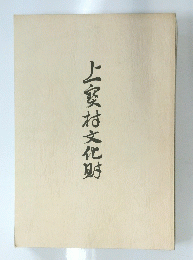 上宝村文化財